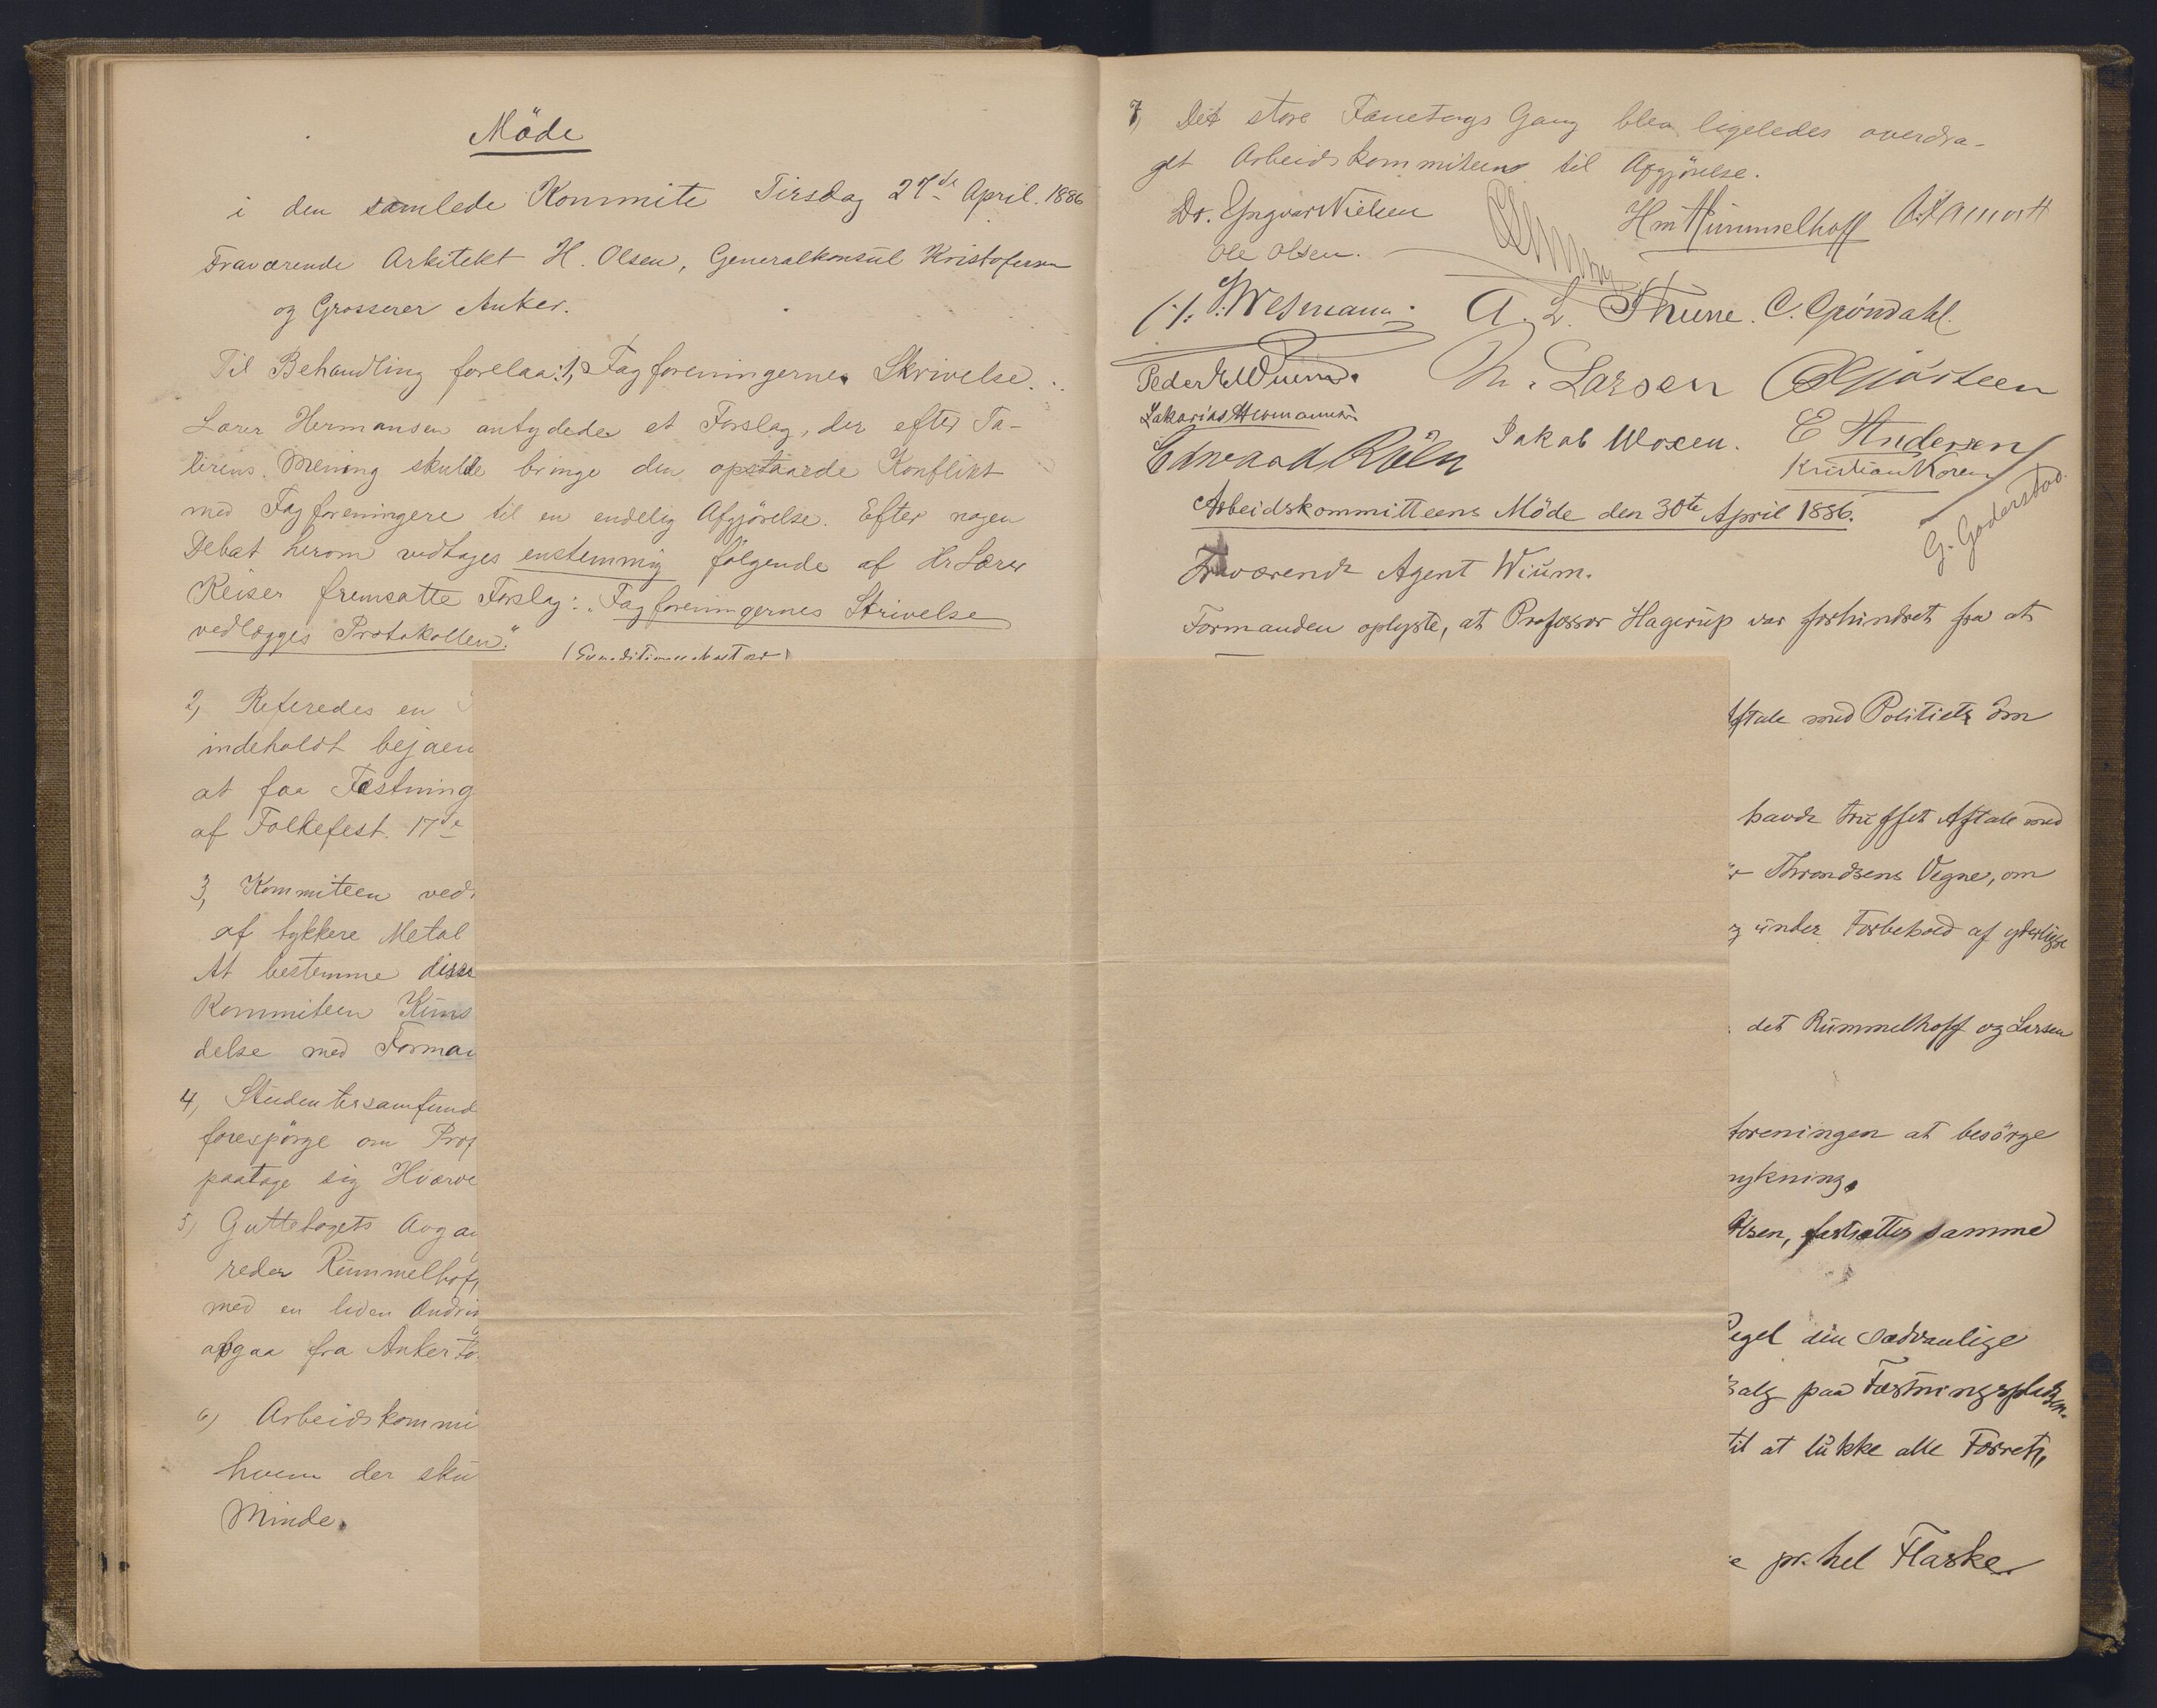 Möde
i den samlede Kommite Tirsdag 27de April. 1886
Fraværende Arkitekt H. Olsen, Generalkonsul Kristofersen
og Grosserer Anker.
Til Behandling forelaa: 1, Fagforeningernes Skrivelse.
Lærer Hermansen antydede et Forslag, der efter Ta-
lerens Mening skulde bringe den opstaaede Konflikt
med Fagforeningere til en endelig Afgjörelse. Efter nogen
Debat herom vedtages enstemmig fölgende af Hr Lærer
Keiser fremsatte Forslag: "Fagforeningernes Skrivelse
vedlægges Protokollen."
2, Referedes en
indeholdt bejaen
at faa Fæstning
af Folkefest. 17de
3, Kommiteen ved
af tykkere Metal
At bestemme disse
Kommiteen Kuns
delse med Forman
4, Studentersamfund
forespörge om Prof
paatage sig Hverve
5, Guttetogets Avgan
reder Rummelhoff
med en liden Ændrin
afgaa fra Ankerto
6, Arbeidskommi
hvem der sku
Minde.
7, Det store Fanetogs Gang blev ligeledes overdra-
get Arbeidskommiteens til Afgjörelse.
Dr. Yngvar Nielsen
Hm Rummelhoff
Ole Olsen.
A. L. Thune. C. Gröndahl.
M. Larsen
Jakob Woxen. E Andersen
Kristian Koren
G. Gaderstad.
Arbeidskommitteens Möde den 30te April 1886.
Fraværende Agent Wium.
Formanden oplyste, at Professor Hagerup var forhindret fra at
Aftale med Politiets om
havde truffet Aftale med
Throndsens Vegne, om
g under Forbehold af yderligere
det Rummelhoff og Larsen
foreningen at besörge
ykning.
lsen, fastsættes samme
egel den sædvanlige
alg paa Fæstningspladsen.
til at lukke alle Forretn
e pr. hel Flaske